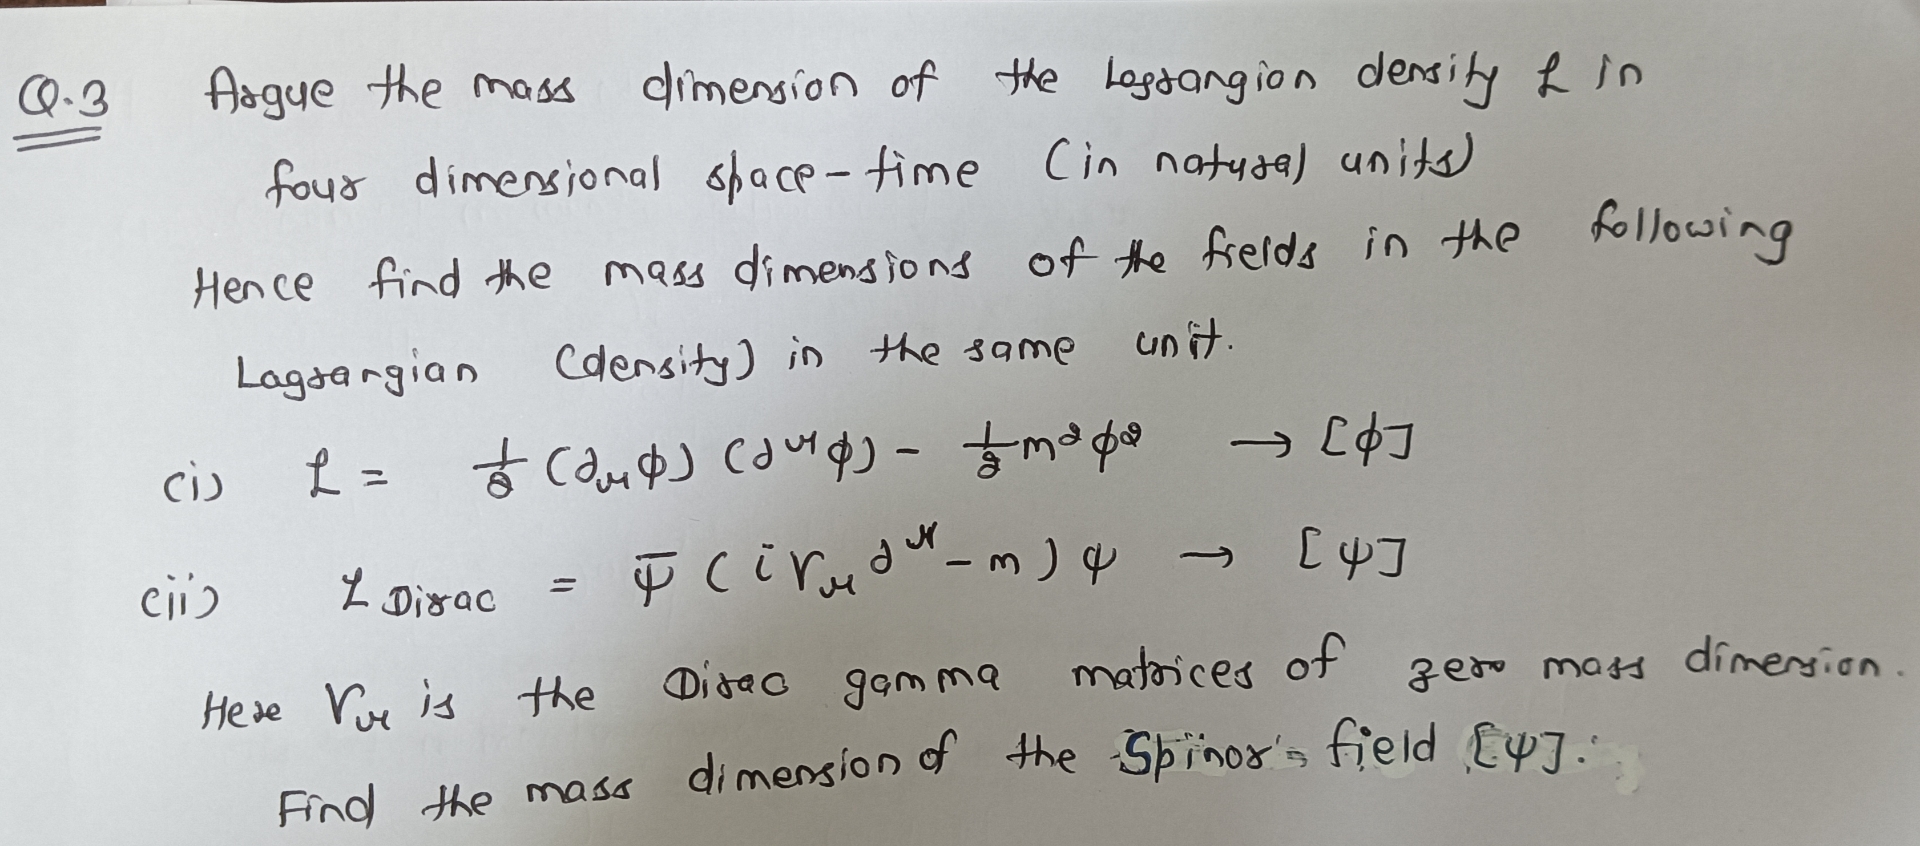 Q.3 Argue the mass dimension of the Lagrangion density ℒ in
four dimensional space-time (in natural units)
Hence find the mass dimensions of the fields in the following
Lagrangian (density) in the same unit.
(i) ℒ = 1/2 (∂_μ φ) (∂^μ φ) - 1/2 m² φ² → [φ]
(ii) ℒ_Dirac = ψ̄ (i γ_μ ∂^μ - m) ψ → [ψ]
Here γ_μ is the Dirac gamma matrices of zero mass dimension.
Find the mass dimension of the Spinor's field [ψ].